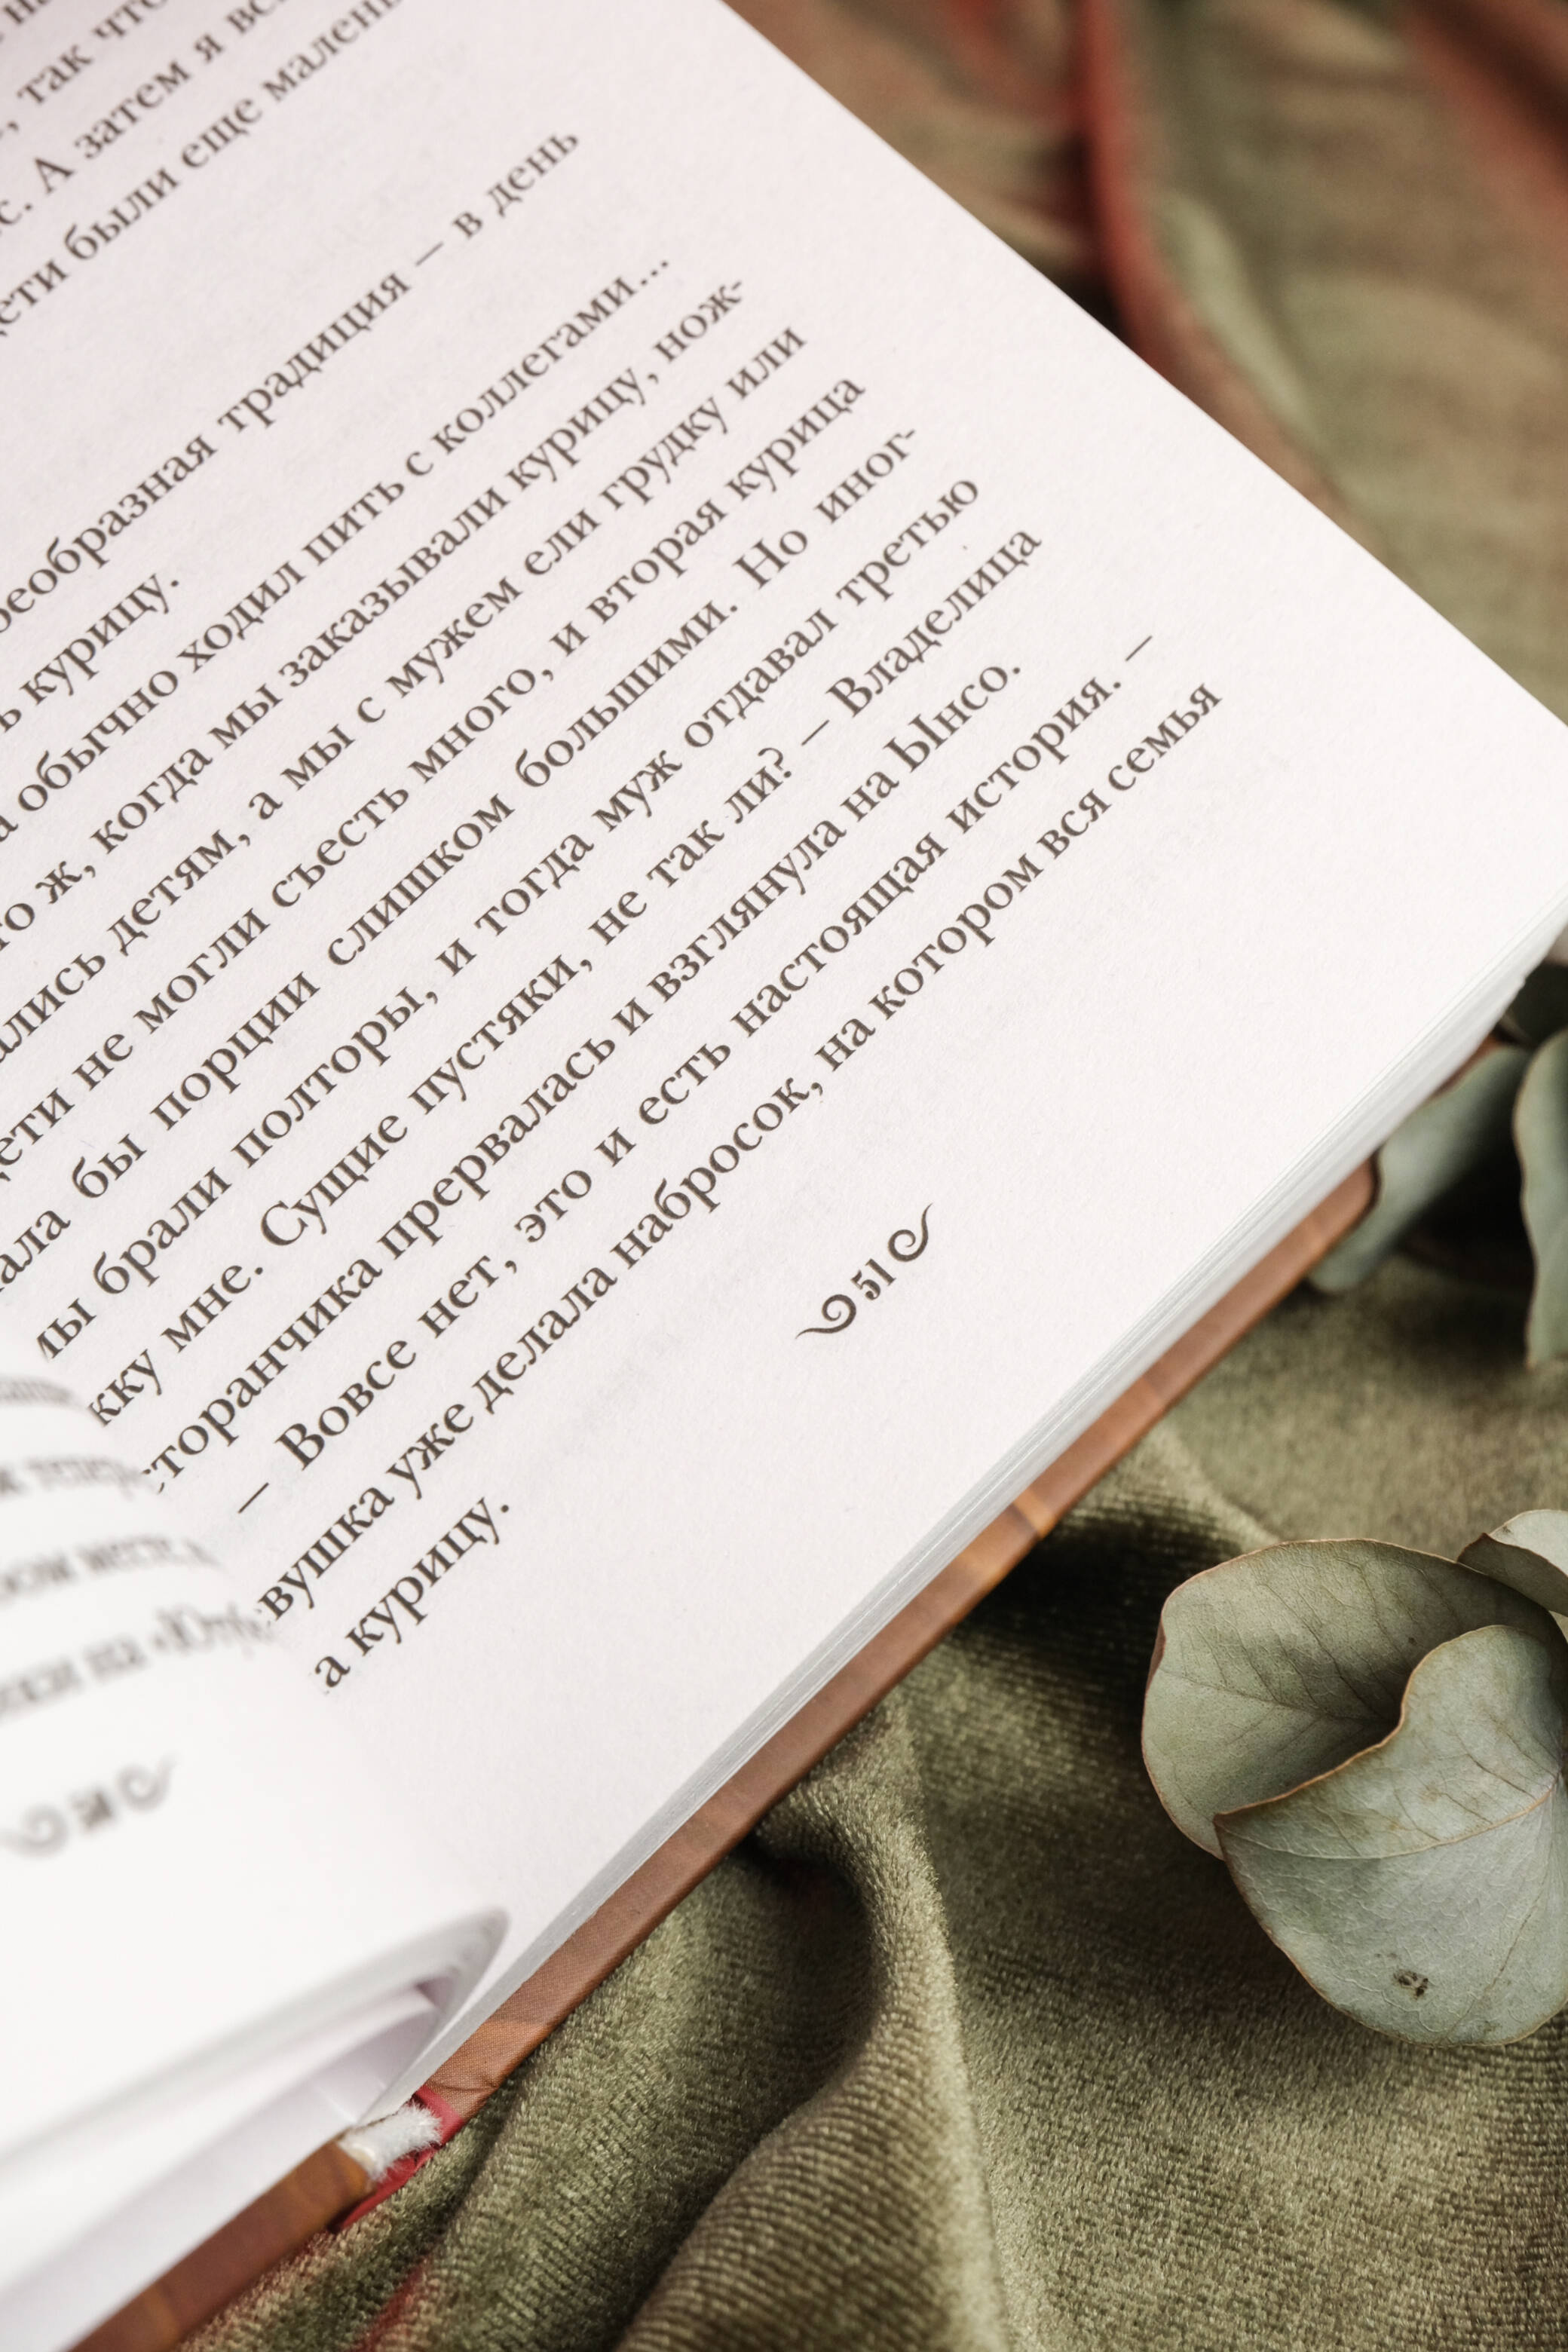 , так что
с. А затем я
дети были еще малень
традиция – в день
ь курицу.
а обычно ходил пить с коллегами...
то ж, когда мы заказывали курицу, нож-
ались детям, а мы с мужем ели грудку или
дети не могли съесть много, и вторая курица
ала бы порции слишком большими. Но иног-
мы брали полторы, и тогда муж отдавал третью
жку мне. Сущие пустяки, не так ли? – Владелица
сторанчика прервалась и взглянула на Ынсо.
– Вовсе нет, это и есть настоящая история. –
вушка уже делала набросок, на котором вся семья
а курицу.
51